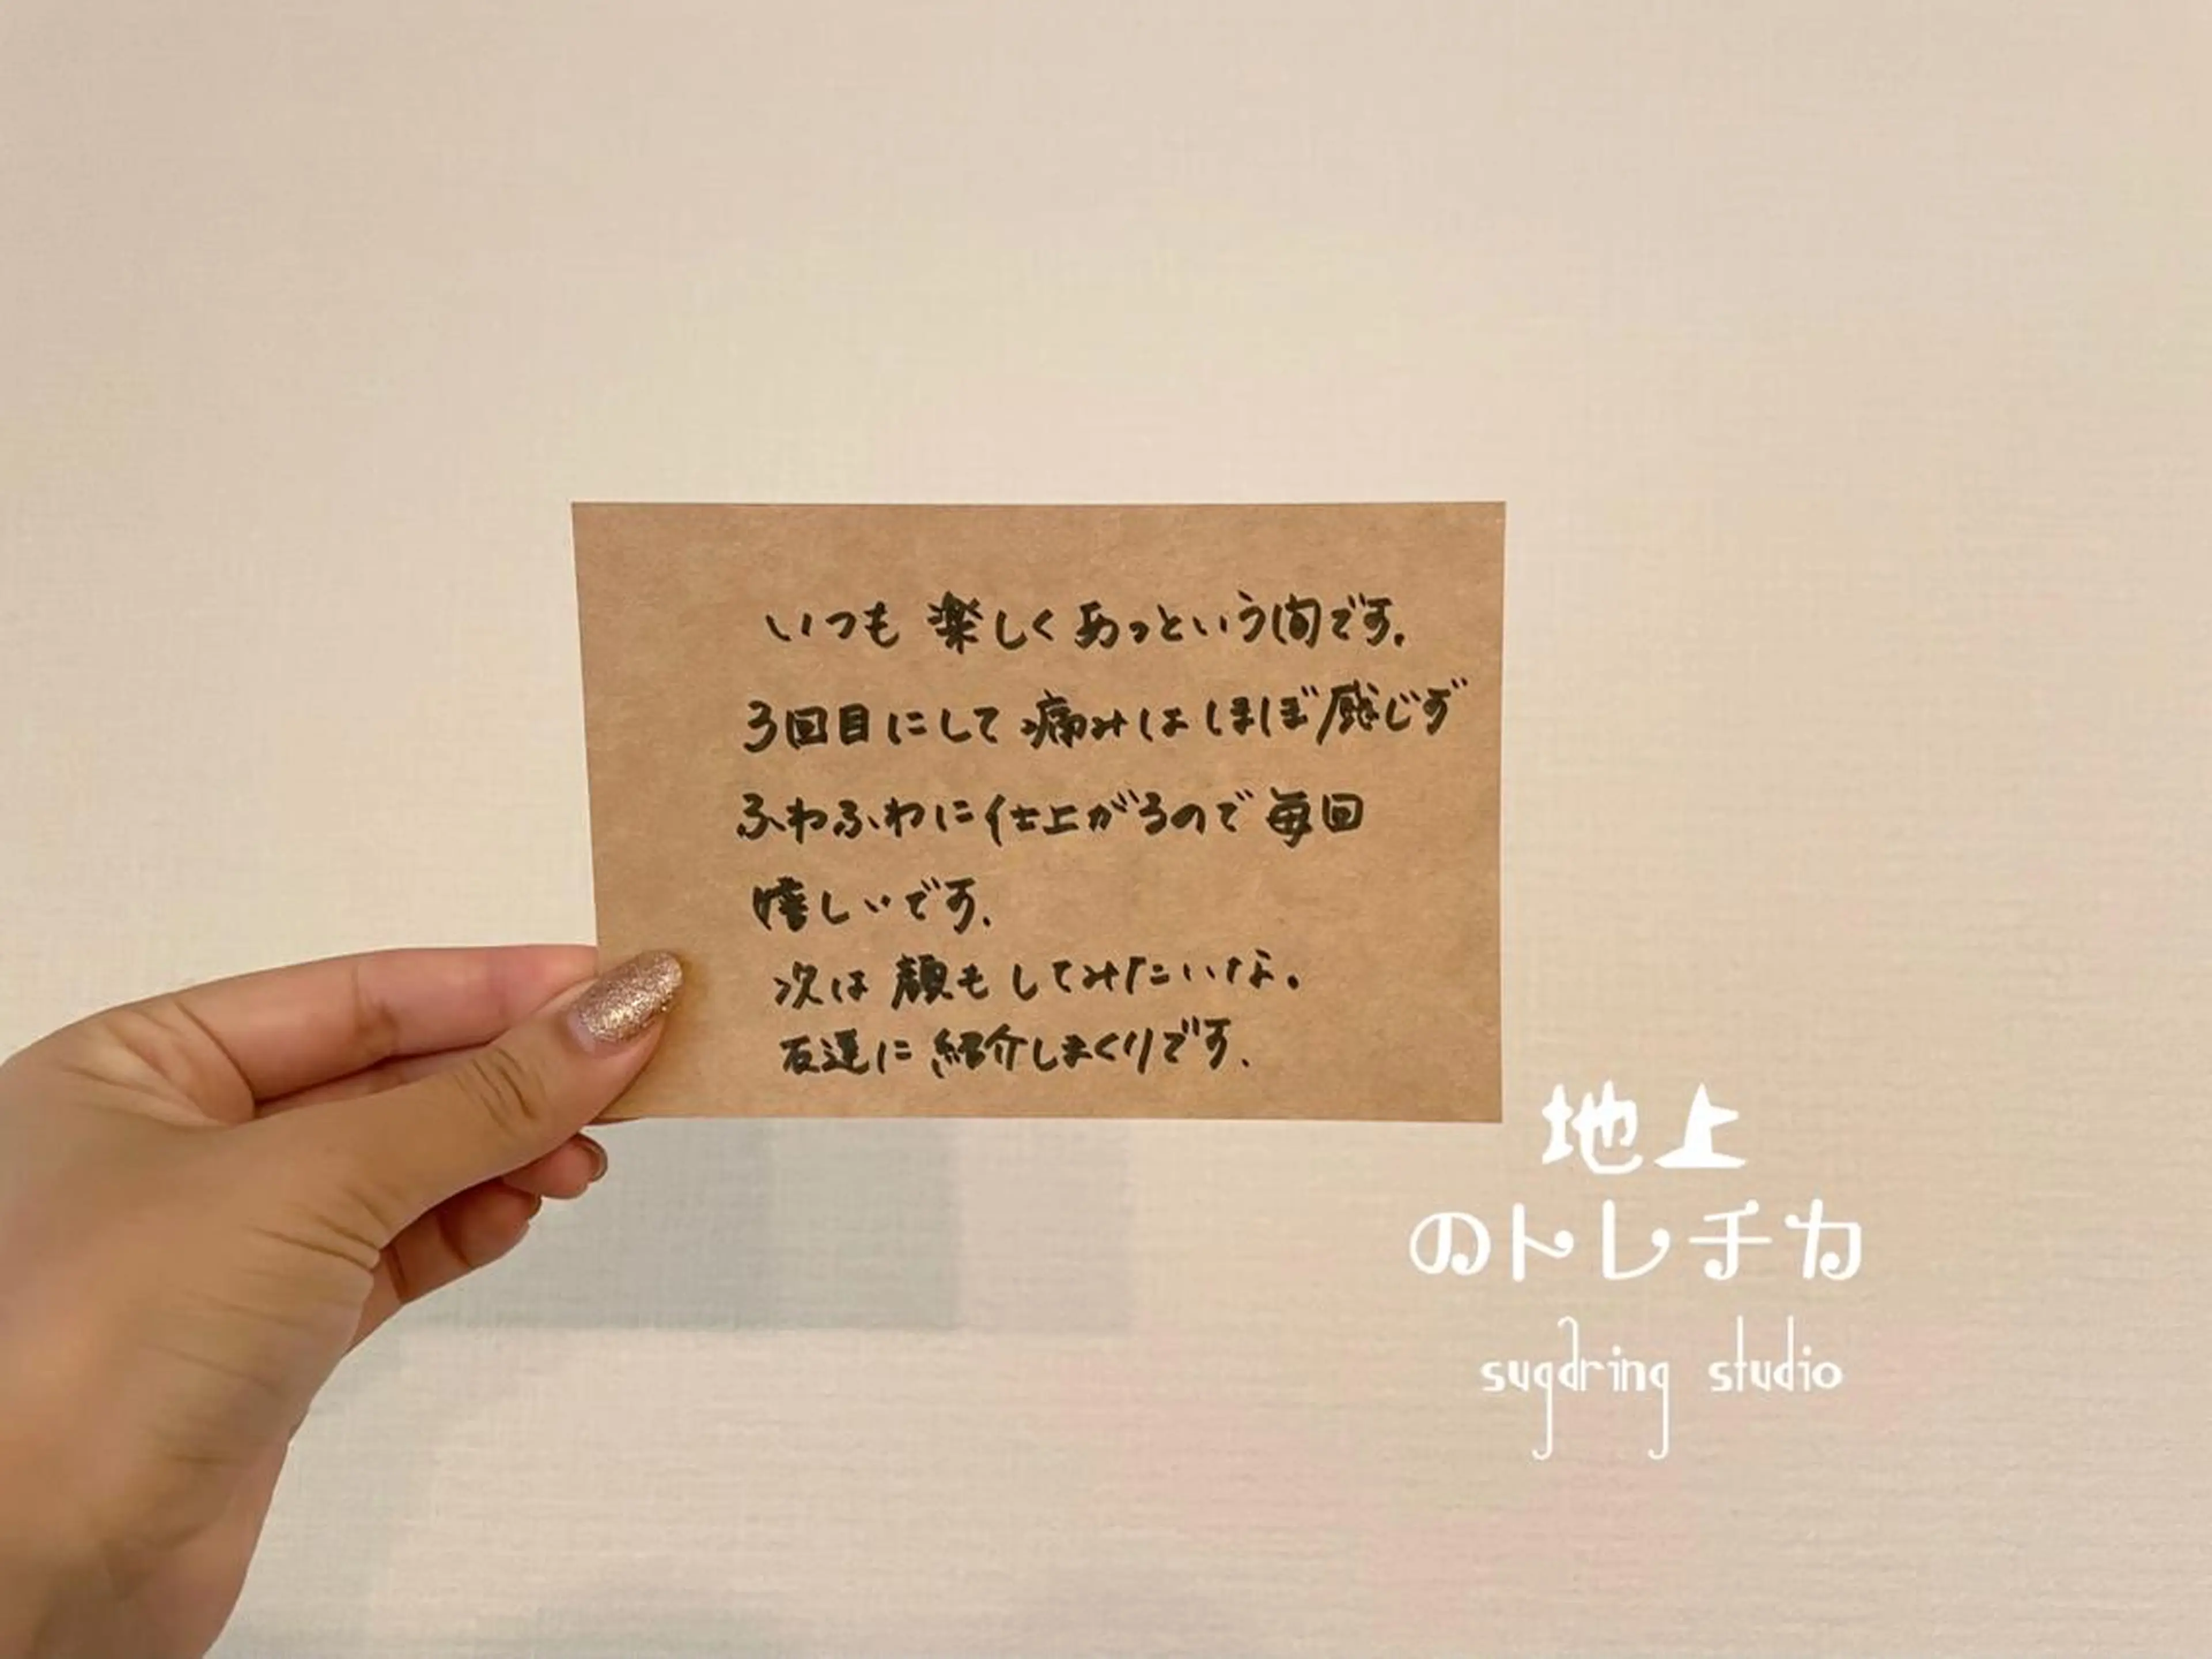 いつも 楽しく あっという間です。
3回目にして 痛みは ほぼ 感じず
ふわふわに仕上がるので 毎回
嬉しいです。
次は 顔も してみたいな。
友達に 紹介しまくりです。
地上
のトレチカ
sugaring studio